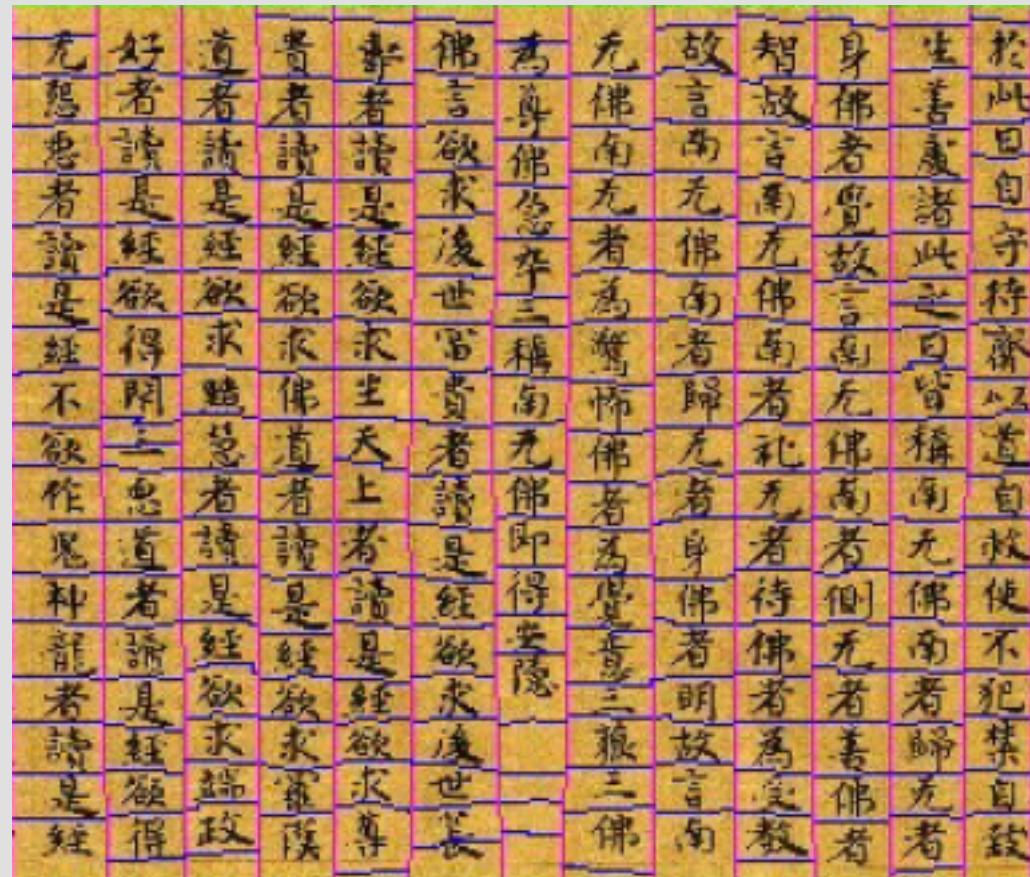 於此日自守持齋以道自救使不犯禁自致
生善處諸此之日皆稱南无佛南者歸无者
身佛者覺故言南无佛南者側无者善佛者
智故言南无佛南者礼无者待佛者為受教
故言南无佛南者歸无者身佛者明故言南
无佛南无者為驚怖佛者為覺意三㹱三佛
為尊佛忽卒三稱南无佛即得安隱
佛言欲求後世富貴者讀是經欲求後世長
壽者讀是經欲求生天上者讀是經欲求尊
貴者讀是經欲求佛道者讀是經欲求蔭
道者讀是經欲求黠慧者讀是經欲求端政
好者讀是經欲得閉三惡道者讀是經欲得
无怨惡者讀是經不欲作鬼神龍者讀是經